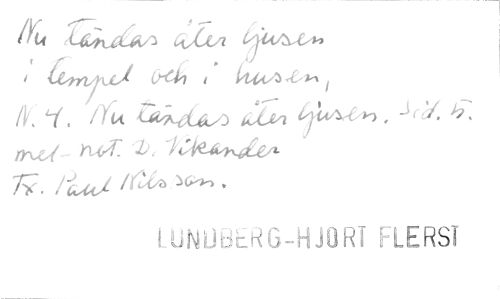 Nu tändas åter ljusen
i tempel och i husen,
N. 4. Nu tändas åter ljusen. Sid. 5.
mel-not. D. Vikander
Tx. Paul Nilsson.
LUNDBERG-HJORT FLERST